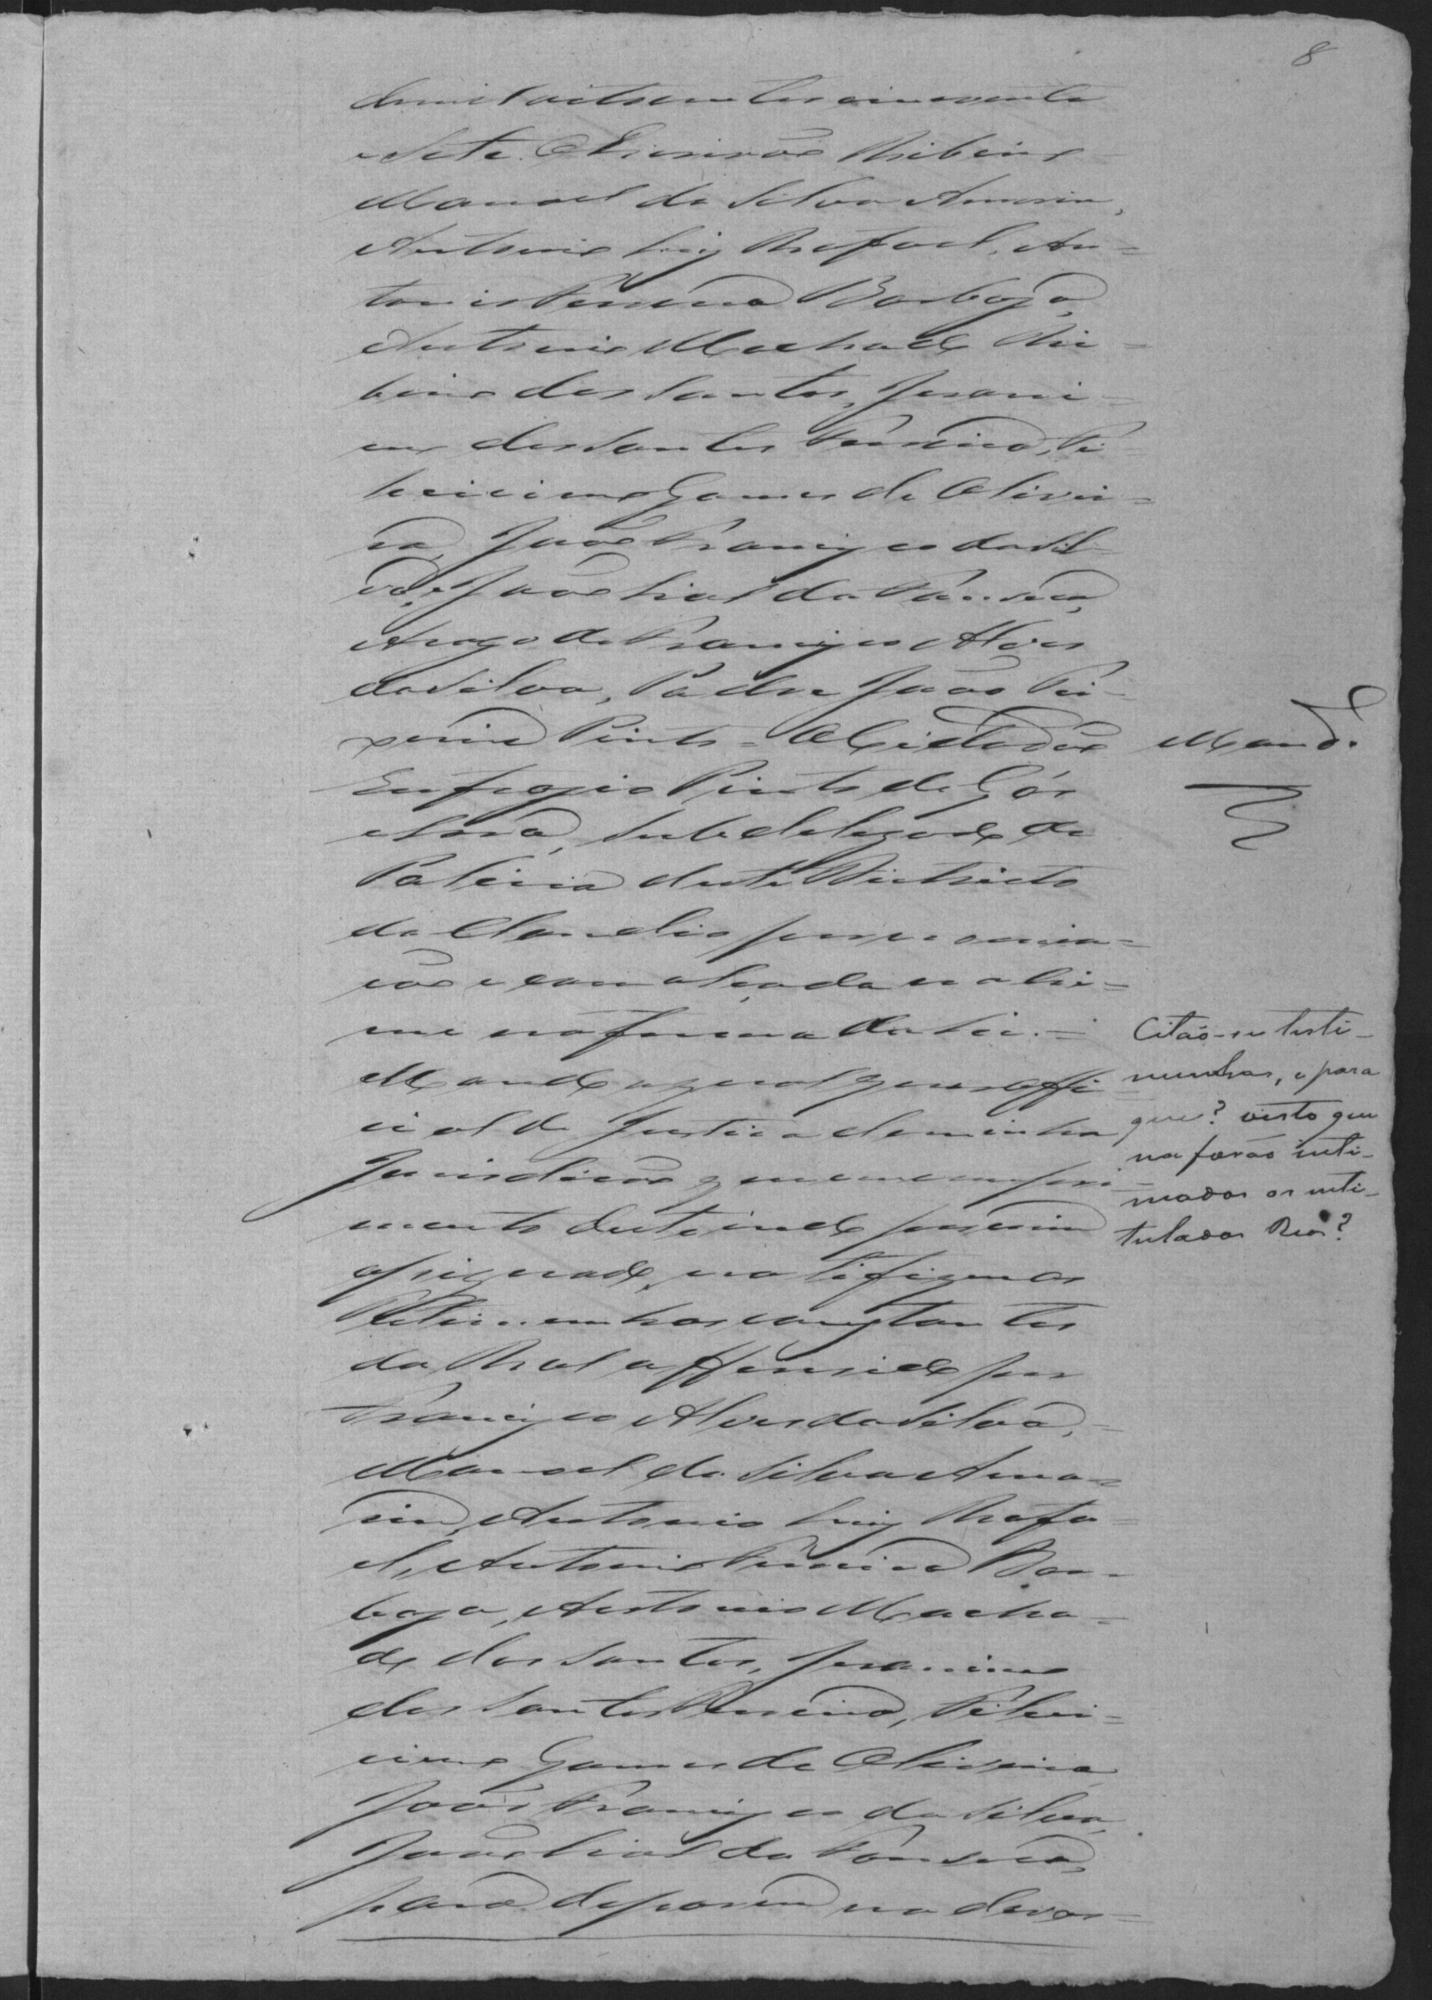 8
de mil oito centos cincoenta
e sete. O Escrivão Ribeiro
Manoel da Silva Amorim,
Antonio Luiz Rafael, An-
tonio Pereira Barboza,
Antonio Machado Ri-
beiro dos Santos, Jeroni-
mo dos Santos Pereira, Fe-
liciano Gomes de Olivei-
ra, João Francisco da Sil-
va, e João Leal da Fonseca,
A rogo de Francisco Alves
da Silva, Padre João Tei-
xeira Pinto = O Cidadão
Mand.º
Pinto de Góes
Subdelegado de
Policia deste Districto
do Claudio por nomia-
ção e com alçada no Cri-
me na forma da Lei. =
Mando a qualquer offi-
cial de Justiça de minha
Jurisdicão que em compri-
mento deste indo por mim
assignado, notifique as
Testimunhas constantes
do Rol offerecido por
Francisco Alves da Silva,
Manoel da Silva Amo-
rim, Antonio Luiz Rafa-
el, Antonio Pereira Bar-
boza, Antonio Macha-
do dos Santos, Jeronimo
dos Santos Pereira, Feli-
ciano Gomes de Oliveira
João Francisco da Silva,
João Leal da Fonseca,
para deporem no
Citão-se testi-
munhas, e para
que? visto que
na forão inti-
mados os inti-
tulados Reos?